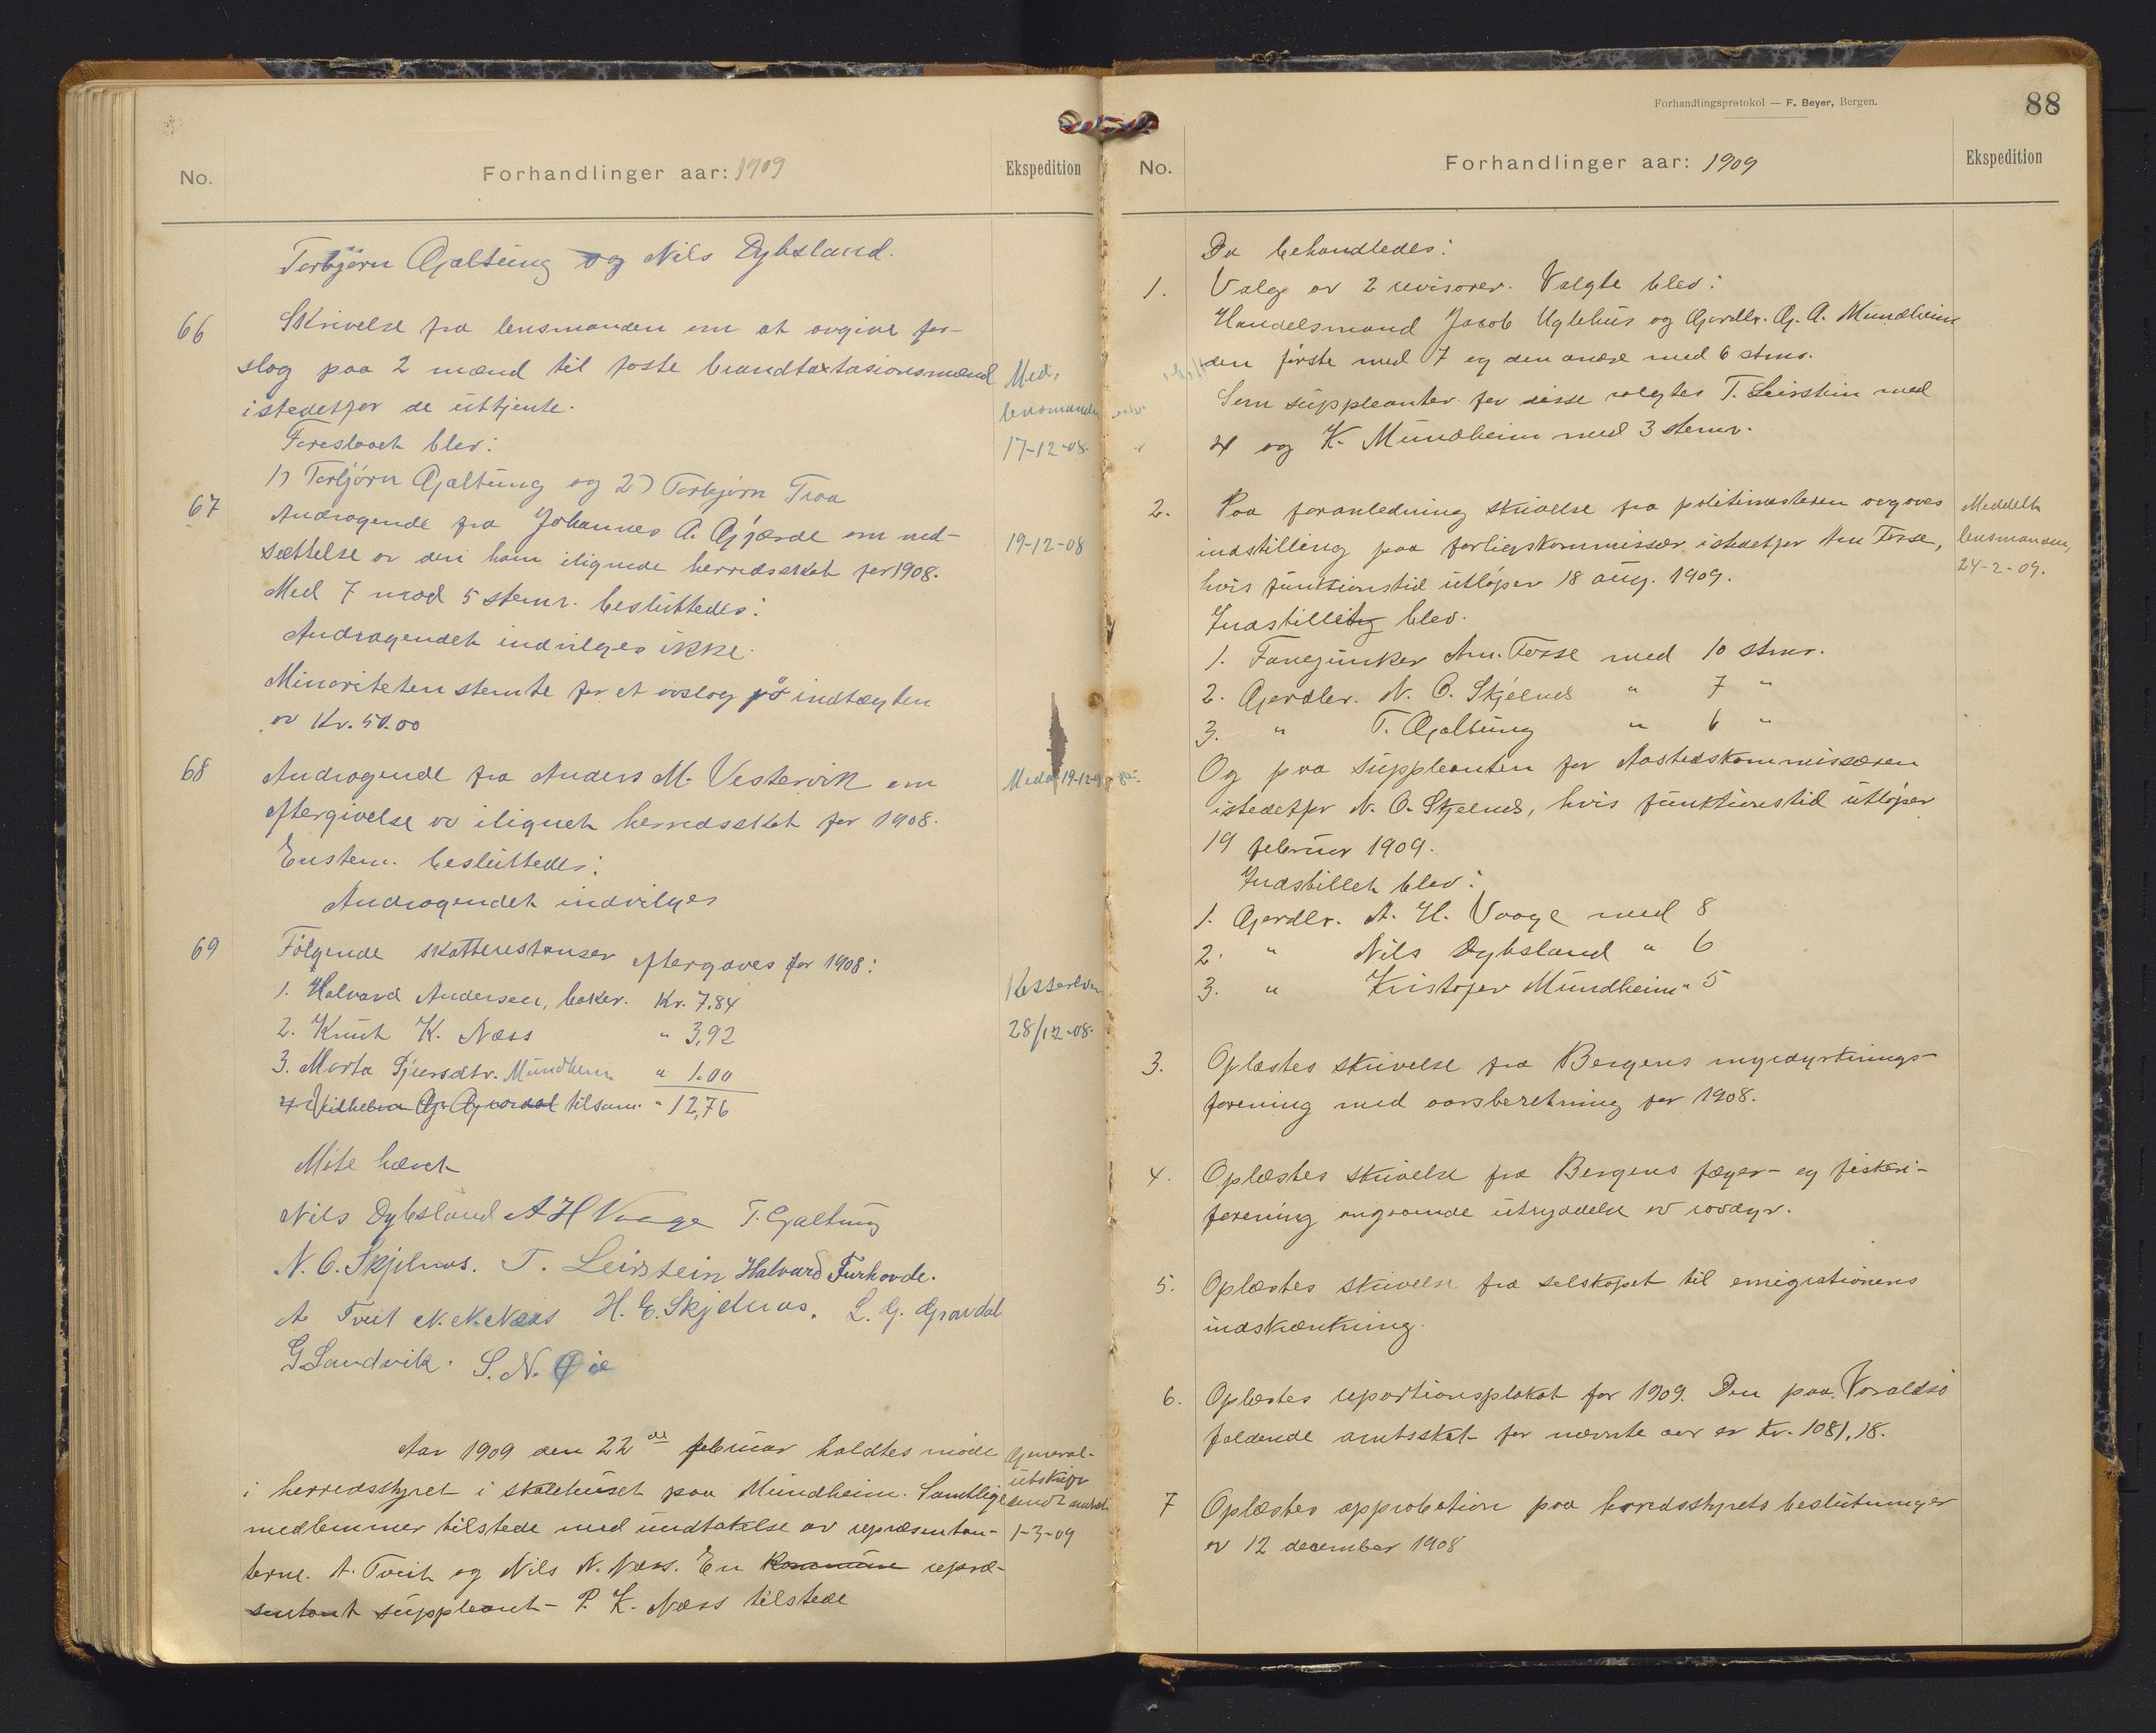 No.
Forhandlinger aar: 1909
Ekspedition
Torbjørn Gjaltung og Nils Dybsland.
66
Skrivelse fra lensmanden om at avgive for-
slag paa 2 mænd til faste brandtaxtasionsmænd
istedetfor de uttjente.
Foreslaaet blev:
1) Torbjørn Gjaltung og 2) Torbjørn Traa
Med.
lensmanden
17-12-08
67
Andragende fra Johannes A. Gjjærde om ned-
sættelse av den ham ilignede herredsskat for 1908.
Med 7 mod 5 stemr. besluttedes:
Andragendet indvilges ikke.
Minoriteten stemte for et avslag på indtægten
av Kr. 50.00
19-12-08
68
Andragende fra Anders M. Vestervik om
eftergivelse av ilignet herredsskat for 1908.
Enstem. besluttedes:
Andragendet indvilges
Medd 19-12-08
69
Følgende skatterestanser eftergaves for 1908:
1. Halvard Andersen, baker. Kr. 7.84
2. Knut K. Næss " 3,92
3. Marta Sjursdtr. Mundheim " 1.00
4. Vilhelm Gj. Gjøvardal tilsam. " 12,76
Kassereren
28/12-08.
Møte hævet
Nils Dybsland A H Vaage T. Gjaltung
N. O. Skjelnæs. T. Leirstein Halvard Furhovde.
A Tveit N. N. Næss H. E. Skjelnæs. L. G. Gravdal
G Sandvik. S. N. Øie
Aar 1909 den 22de februar holdtes møde
i herredsstyret i skolehuset paa Mundheim. Samtlige
medlemmer tilstede med undtakelse av repræsentan-
terne. A. Tveit og Nils N. Næss. En Kommune repræ-
sentant suppleant - P. K. Næss tilstede
General-
utskrift
sendt amtet
1-3-09
Forhandlingsprotokol — F. Beyer, Bergen.
88
No.
Forhandlinger aar: 1909
Ekspedition
Da behandledes:
1.
Valg av 2 revisorer. Valgte blev:
Handelsmand Jacob Uglehus og Gardbr. G. A. Mundheim
den første med 7 og den anden med 6 stmr.
Som suppleanter for disse valgtes T. Leirstein med
4 og K. Mundheim med 3 stemr.
2.
Paa foranledning skrivelse fra politimesteren avgaves
indstilling paa forligskommissær istedetfor Am Tosse,
hvis funktionstid utløper 18 aug. 1909.
Indstilletng blev.
1. Fanejunker Am. Tosse med 10 stmr.
2. Gardbr. N. O. Skjelnes " 7 "
3. " T. Gjaltung " 6 "
Og paa suppleanten for Aastedskommissæren
istedetfor N. O. Skjelnes, hvis funktionstid utløper
19 februar 1909.
Indstillet blev:
1. Gardbr. A. H. Vaage med 8
2. " Nils Dybsland " 6
3. " Kristofer Mundheim " 5
Meddelt
lensmanden,
24-2-09.
3.
Oplæstes skrivelse fra Bergens myrdyrknings-
forening med aarsberetning for 1908.
4.
Oplæstes skrivelse fra Bergens jæger- og fiskeri-
forening angaaende utryddelse av rovdyr.
5.
Oplæstes skrivelse fra selskapet til emigrationens
indskrænkning.
6.
Oplæstes repartionsplakat for 1909. Den paa Varaldsø
faldende amtsskat for nævnte aar er Kr. 1081,18.
7
Oplæstes approbation paa herredsstyrets beslutninger
av 12 december 1908